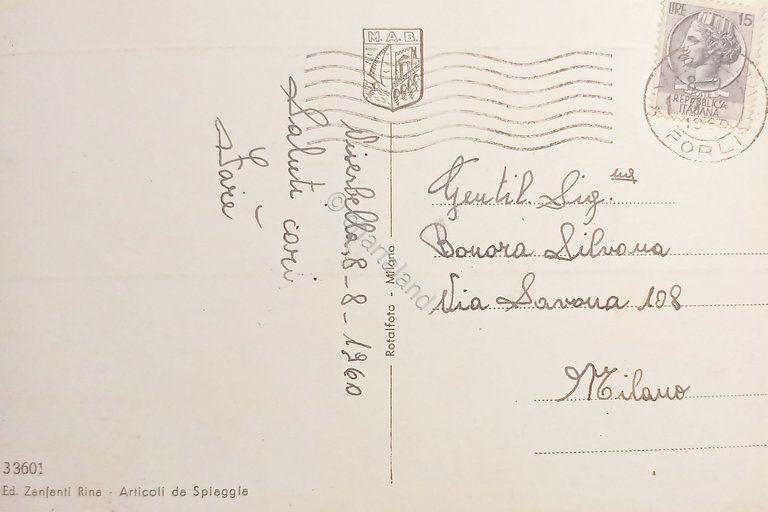 M.A.B.
LIRE 15
REPUBBLICA
ITALIANA
FORLI
Viserbella, 8-8-1960
Saluti cari
Gentil. Sig.na
Bonora Silvana
Via Savona 108
Milano
Rotalfoto - Milano
© Cartoland
33601
Ed. Zanfanti Rina - Articoli da Spiaggia